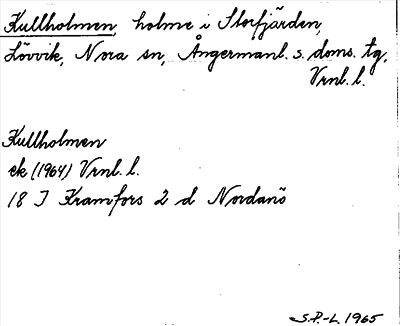 Kullholmen, holme i Storfjärden,
Lövvik, Nora sn, Ångermanl. s. doms. tg,
Vrnl. l.
Kullholmen
ek (1964) Vrnl. l.
18 I Kramfors 2 d Nordanö
S.P.-L 1965